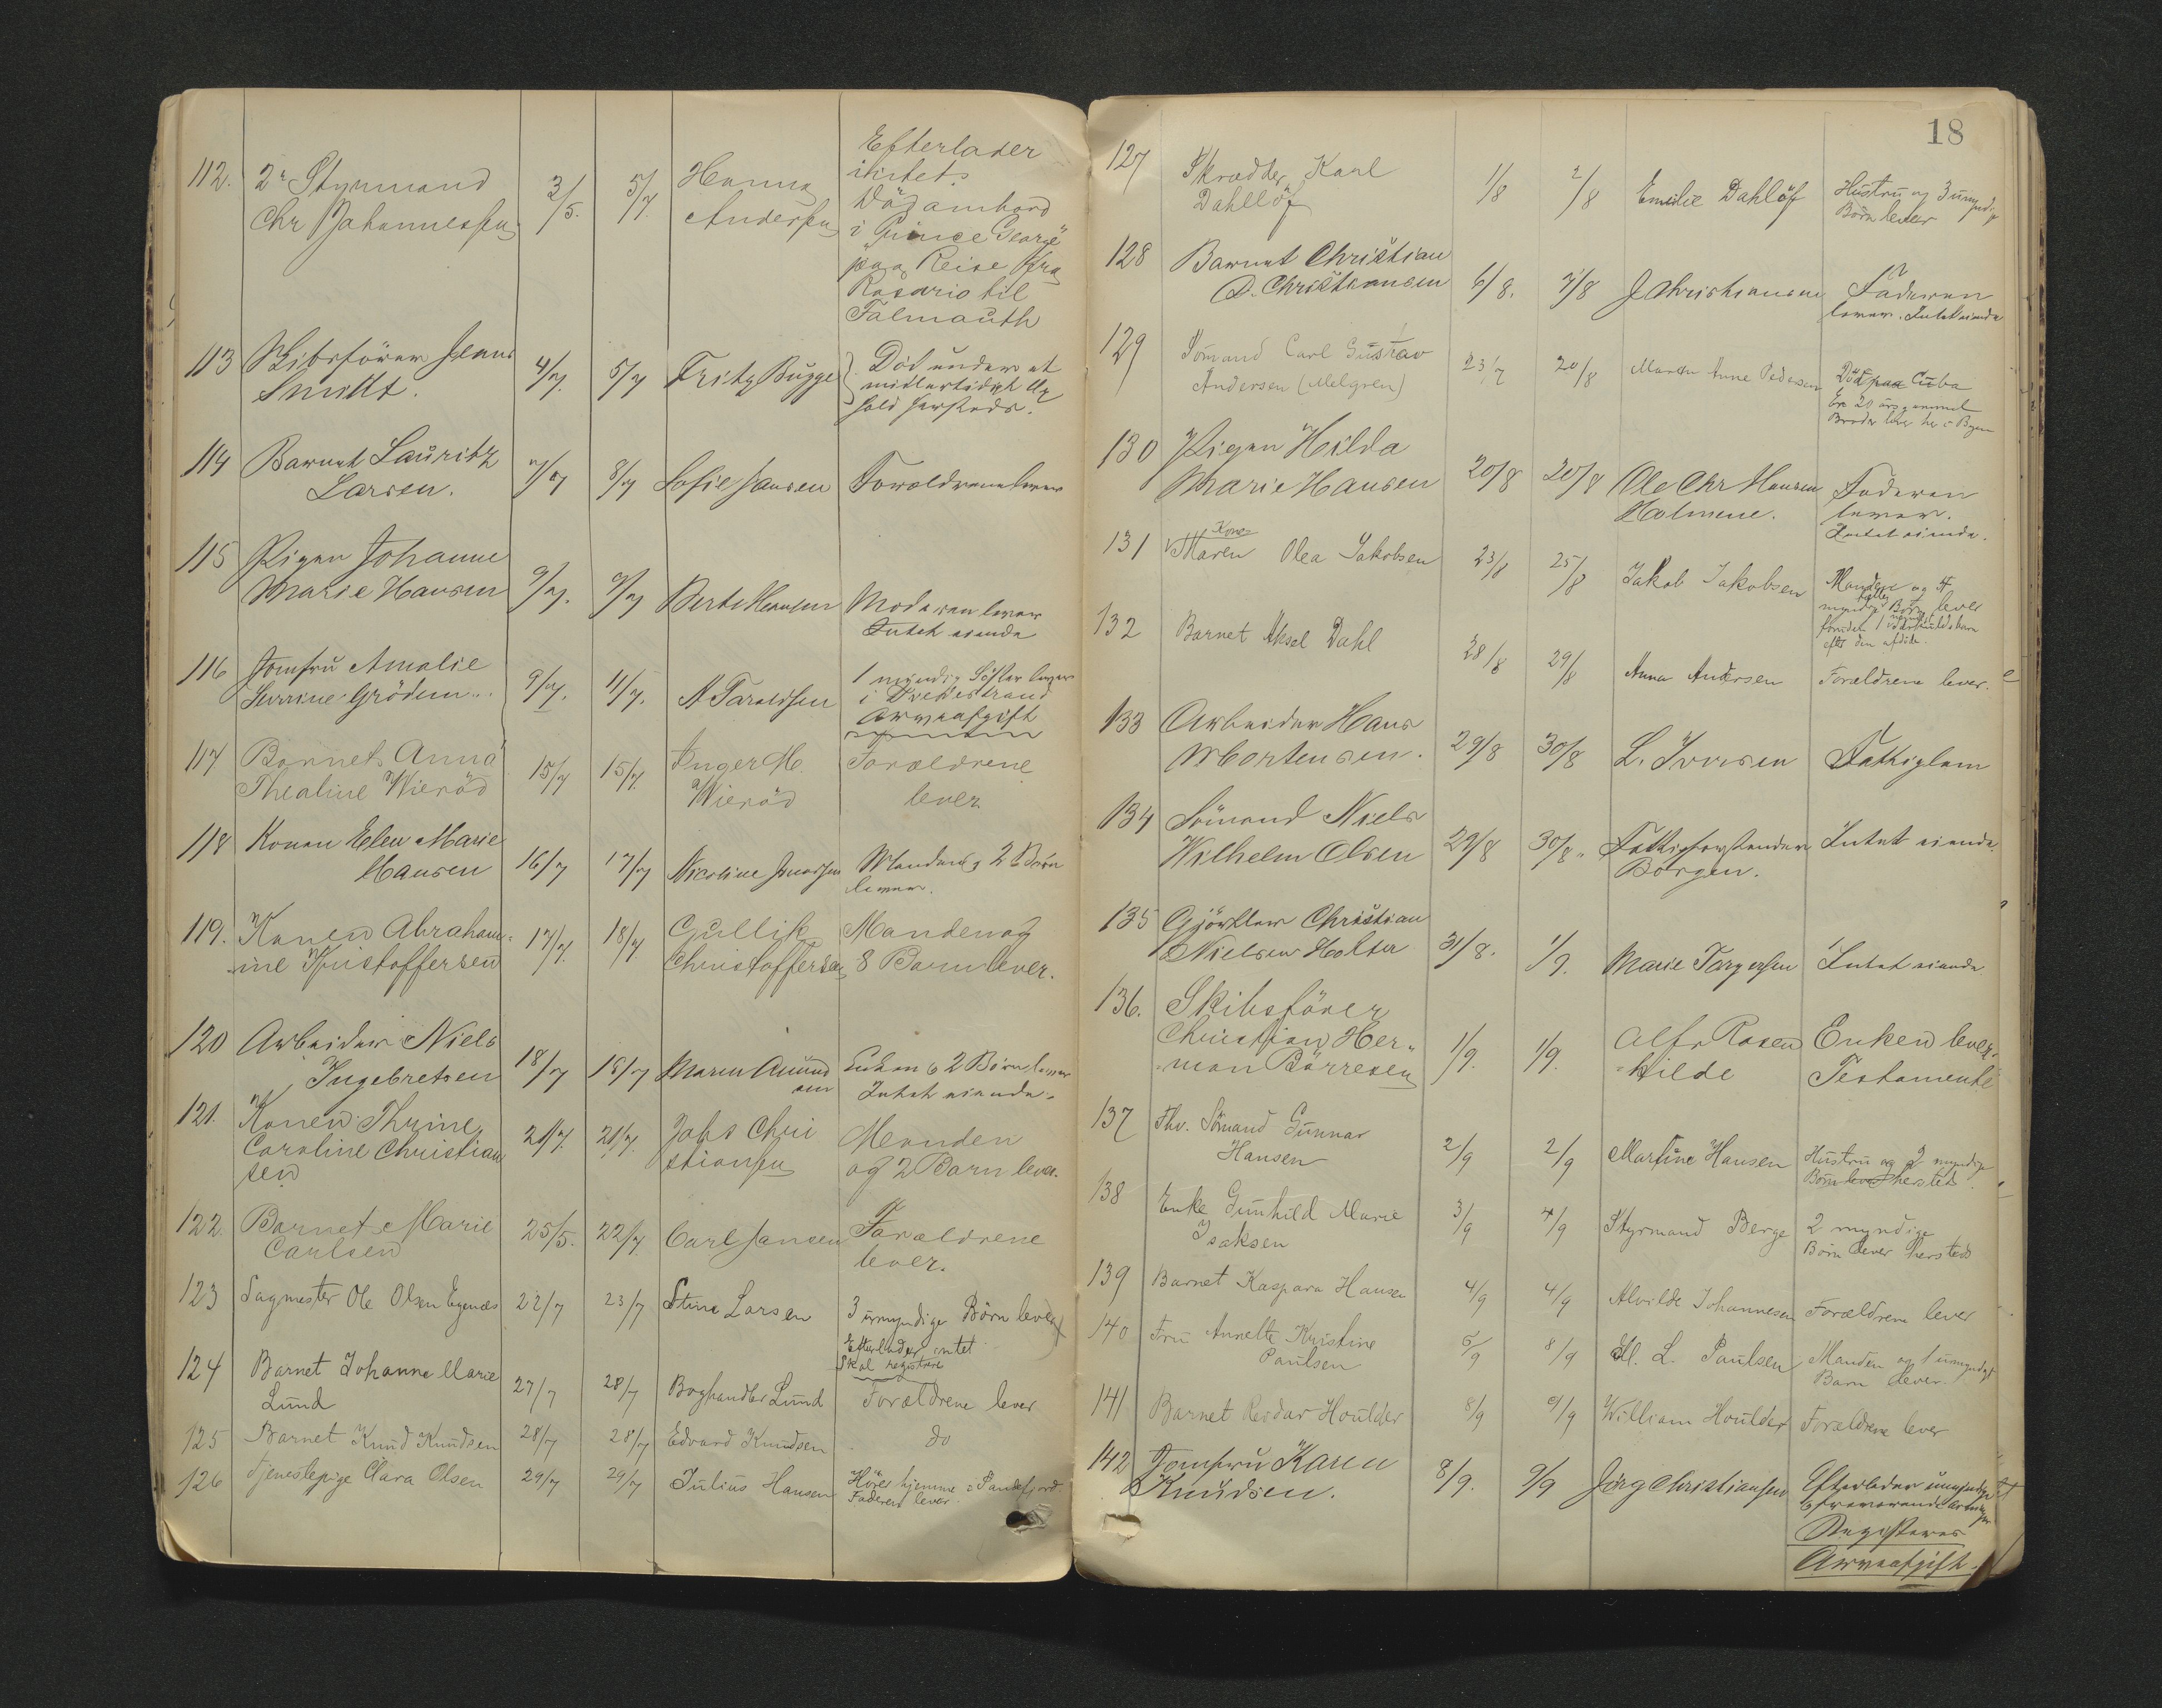 112. 2n Styrmand 3/5. 5/7. Hanna Efterlader
Chr Johannessen Anderssen intet.
Död ombord
i "Prince George"
paa Reise fra
Rosario til
Falmouth
113 Skibsförer Jens 4/7. 5/7 Fritz Bugge Död under et
Smith. midlertidigt Op
hold hersteds.
114 Barnet Lauritz 7/7 8/7 Sofie Jansen Forældrene lever
Larsen.
115 Pigen Johanne
Marie Hansen 9/7. 9/7 Berte Hansen Moderen lever
Intet eiende
116 Jomfru Amalie 9/7. 11/7. N Taraldsen 1 myndig Söster lever
Grödem i Tvedestrand
Arveafgift
117 Barnet Anna 15/7 15/7. Inger M. Forældrene
Thealine Wieröd Wieröd lever
118 Konen Elen Marie
Hansen 16/7 17/7 Nicoline Manden og 2 Börn
lever.
119. Konen Abraham- 17/7. 18/7. Gullik Manden og
ine Kristoffersen Christoffersen 8 Barn lever.
120 Arbeider Niels
Ingebretsen 18/7 18/7 Maren Amund Enken & 2 Börn lever
sen Intet eiende.
121. Konen Thrine
Caroline Christian 20/7. 21/7. Johs Chri Manden
sen stiansen og 2 Barn lever.
122. Barnet Marie 25/5. 22/7 Carl Jansen Forældrene
Carlsen lever.
123 Sagmester Ole Olsen 22/7 23/7 Stina Larsen 3 umyndige Börn lever
Efterlader intet
Skal registreres
124 Barnet Johanne Marie
Lund 27/7 28/7 Boghandler Lund Forældrene lever
125 Barnet Knud Knudsen 28/7 28/7 Edvard Knudsen do
126 Tjenestepige Clara Olsen 29/7 29/7 Julius Hansen Hörer hjemme i Sandefjord
Faderen lever.
18
127 Skrædder Karl 1/8 2/8 Emilie Dahlöf Hustru og 3 umyndige
Dahllöf Börn lever
128 Barnet Christian
D. Christiansen 6/8. 7/8 J Christiansen Faderen
lever. Intet eiende
129 Sömand Carl Gustav 23/7 20/8 Maren Anne Pedersen Död paa Cuba
Andersen (Melgren) Er 20 års gammel
Broder lever her i Byen
130 Pigen Hilda
Marie Hansen 20/8 20/8 Ole Chr Hansen Faderen
Holmene. lever.
Intet eiende.
131 Kone
Maren Olea Jakobsen 23/8 25/8 Jakob Jakobsen Manden og 4
myndige Börn lever
efter den afdöde.
132 Barnet Aksel Dahl 28/8 29/8 Anna Andersen Forældrene lever.
133 Arbeider Hans
Mortensen. 29/8 30/8 L. Iversen Fattiglem
134 Sömand Niels
Wilhelm Olsen 29/8 30/8. Fattigforstander Intet eiende.
Borgen.
135 Gjörtler Christian
Nielsen Holter 31/8. 1/9. Marie Torgersen Intet eiende
136. Skibsförer
Christian Her- 1/9. 1/9. Alf Rosen Enken lever.
man Börresen kilde Testamente
137 Fhv. Sömand Gunnar 2/9 2/9 Martine Hansen Hustru og 2 myndige
Hansen Börn lever hersteds
138 Enke Gunhild Marie 3/9 4/9 Styrmand Berge 2 myndige
Isaksen Börn lever hersteds
139 Barnet Kaspara Hansen 4/9 4/9 Alvilde Johannesen Forældrene lever
140 Fru Annette Kristine 6/9 8/9 M. L. Paulsen Manden og 1 umyndigt
Paulsen Barn lever.
141 Barnet Reidar Houlder 8/9 9/9 William Houlder Forældrene lever
142 Jomfru Karen 8/9. 9/9 Jörg Christiansen Efterlader umyndige
Knudsen. & fraværende Arvinger
Registeres
Arveafgift.